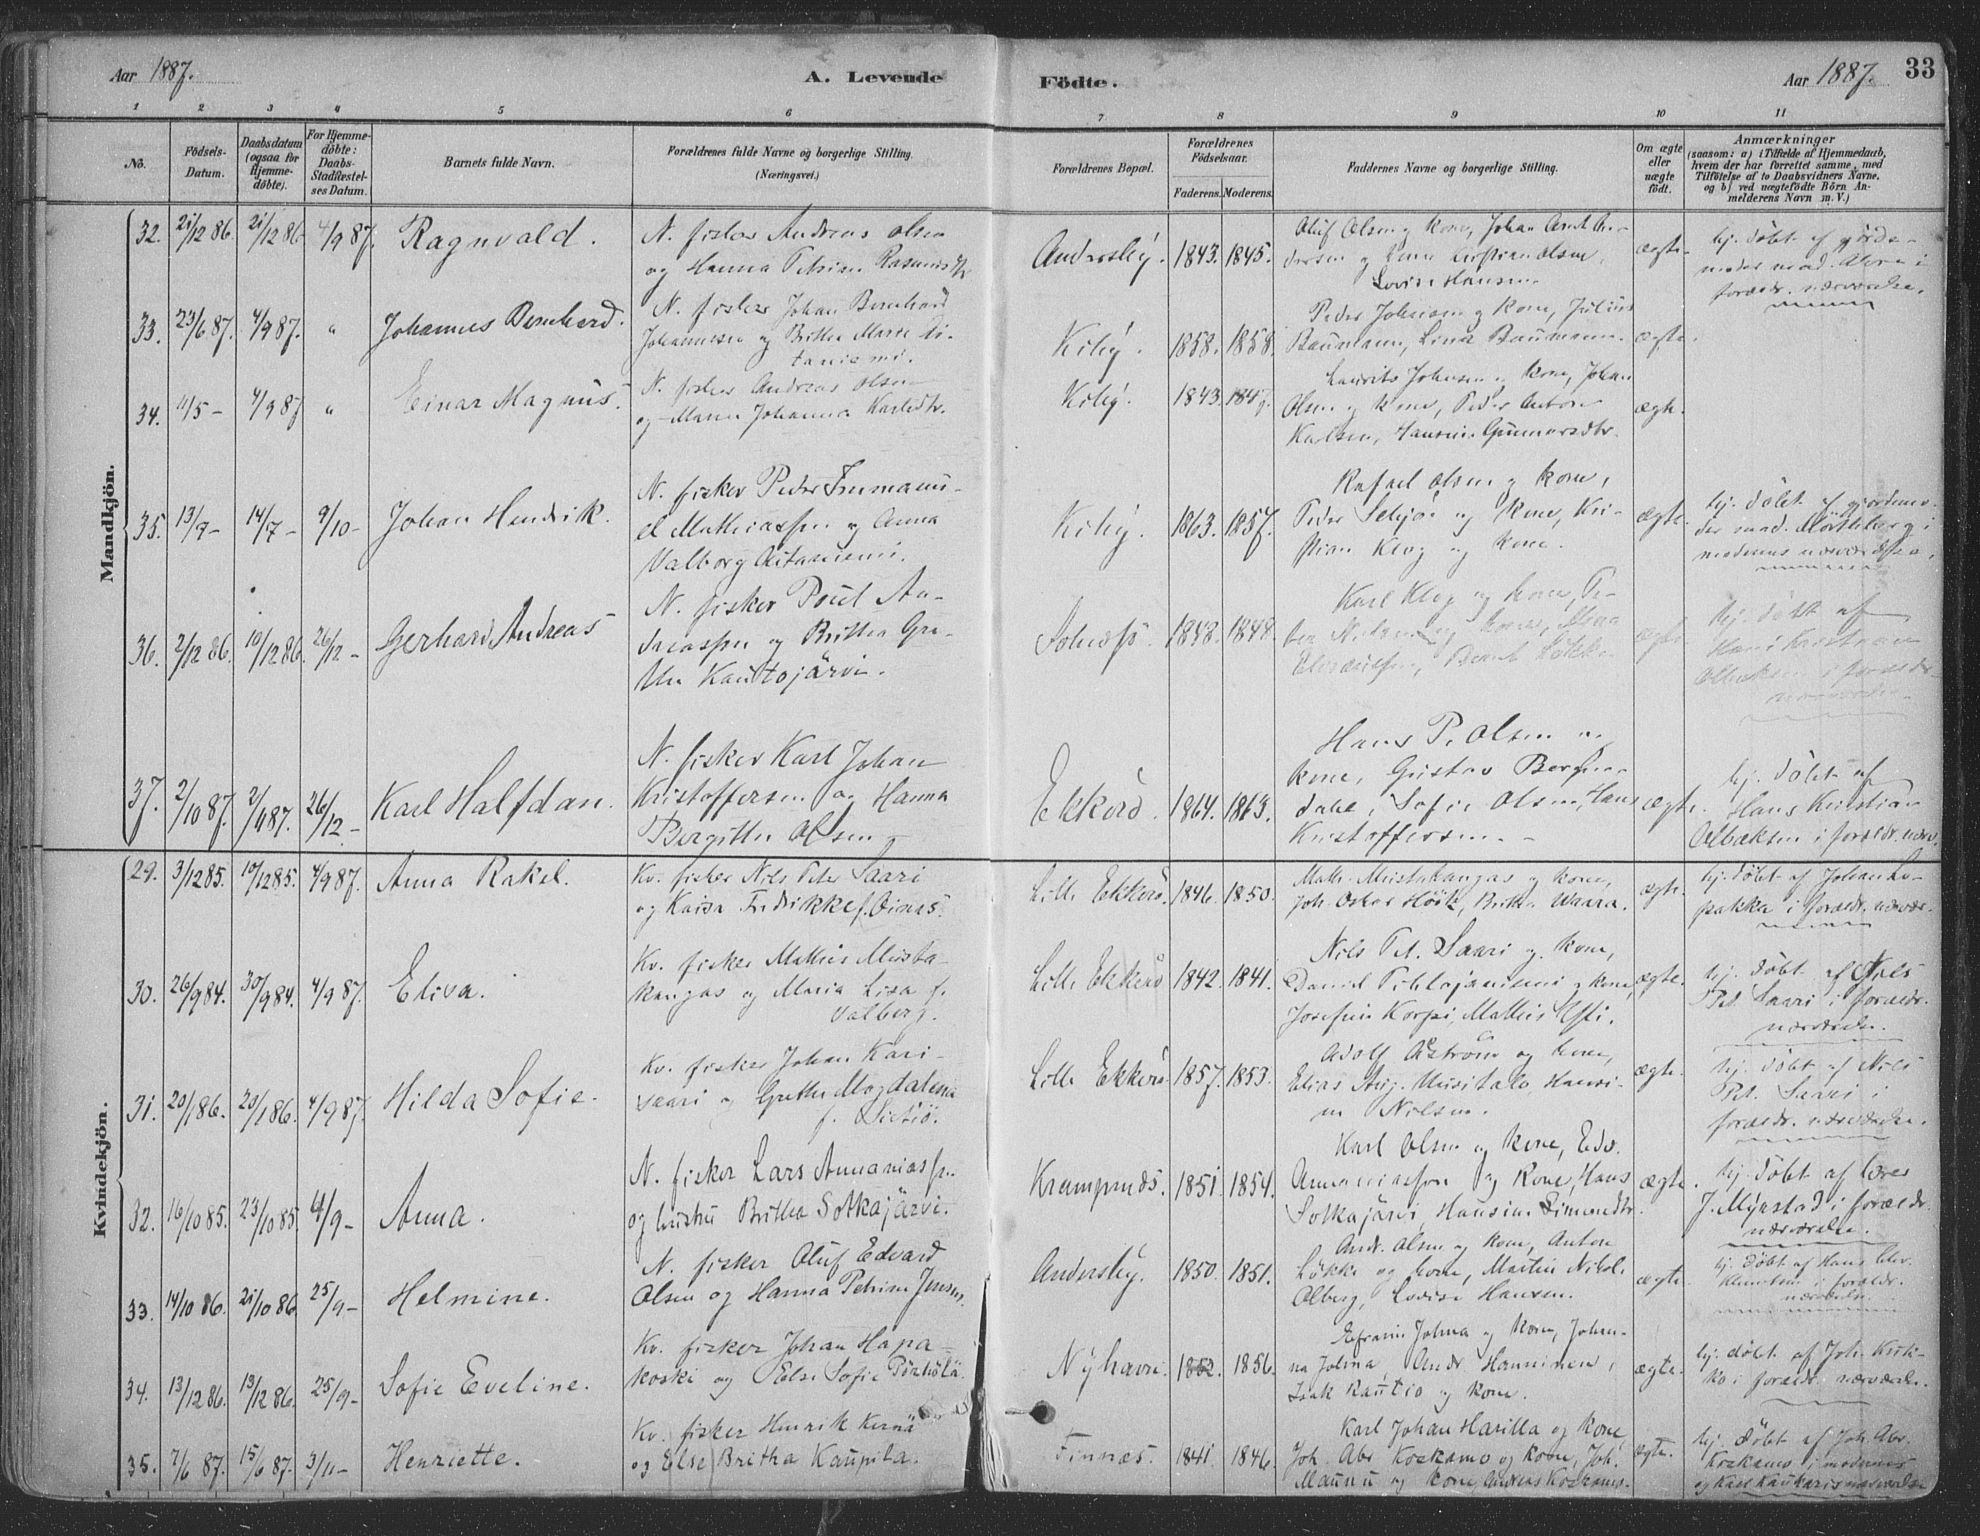 Aar 1887.
A. Levende
Födte.
Aar 1887.
33
1 2 3 4 5 6 7 8 9 10 11
No.
Födsels-
Datum.
Daabsdatum
(ogsaa for
Hjemme-
döbte).
For Hjemme-
döbte:
Daabs-
Stadfæstel-
ses Datum.
Barnets fulde Navn.
Forældrenes fulde Navne og borgerlige Stilling.
(Næringsvei.)
Forældrenes Bopæl.
Forældrenes
Födselsaar.
Faderens. Moderens.
Faddernes Navne og borgerlige Stilling.
Om ægte
eller
uægte
födt.
Anmærkninger
(saasom: a) i Tilfælde af Hjemmedaab,
hvem der har forrettet samme, med
Tilföielse af to Daabsvidners Navne,
og b) ved uægtefödte Börn An-
melderens Navn m. V.)
Mandkjön.
32. 21/12 86 21/12 86 4/9 87. Ragnvald.
N. fisker Andreas Olsen
og Hanna Petrine Rasmusdtr
Andersby. 1843. 1845.
Oluf Olsen og kone, Johan
Lovise Hansen.
ægte.
hj. döbt af
forældr. nærværelse.
33. 23/6 87. 4/9 87. " Johannes Bernhard.
N. fisker Johan Bernhard
Johannesen og Britha Marie Ai-
taniemi.
Kiby. 1858. 1858.
Peder Johnsen og kone, Julius
Baumann, Lina Baumann.
ægte.
34. 11/5 - 4/9 87 " Einar Magnus.
N. fisker Andreas Olsen
og Maren Johanna Karlsdtr.
Kiby. 1843. 1847.
Laurits Johnsen og kone, Johan
Olsen og kone, Peder Anton
Karlsen, Hansine Gunnarsdtr.
ægte.
35. 13/9 - 14/7 - 9/10 - Johan Hendrik.
N. fisker Peder Emmanu-
el Mathiassen og Anna
Valborg Aitaniemi.
Kiby. 1863. 1857.
Rafael Olsen og kone,
Peder og kone, Kri-
stian Klog og kone.
ægte.
hj. döbt af gjordemo-
der mad. i
moderens nærværelse.
36. 2/12 86. 19/12 86. 26/12 - Gerhard Andreas
N. fisker Poul An-
dreassen og Britha Gre-
the Kantojärvi.
1848. 1848.
Karl Klog og kone, Pe-
der Nilsen og kone,
ægte
hj. döbt af
Hans Kristian
Olbæksen i forældr.
nærværelse.
37. 2/10 87. 2/4 87. 26/12 - Karl Halfdan.
N. fisker Karl Johan
Kristoffersen og Hanna
Bergitte Olsen
Ekkerö. 1864. 1863.
Hans P. Olsen og
kone, Gustav
Sofie Olsen, Hans
Kristoffersen.
ægte.
hj. döbt af
Hans Kristian
Olbæksen i forældr. nærv.
Kvindekjön.
29. 3/12 85. 10/12 85. 4/9 87. Anna Rakel.
Kv. fisker Nils Peter Saari
og Kaisa Fredrikke f. Oinas.
Lille Ekkerö. 1846. 1850.
Math. Mustakangas og kone,
Joh. Oskar Britha Waara.
ægte.
hj. döbt af Johan La-
pakka i forældr. nærvær.
30. 26/9 84. 30/9 84. 4/9 87. Eliva.
Kv. fisker Mathis Musta-
kangas og Maria Lisa f.
Valberg.
Lille Ekkerö 1842. 1841.
Nils Pet. Saari og kone,
Daniel og kone,
Josefin Korpi, Mathis
ægte.
hj. döbt af Nils
Pet. Saari i forældr.
nærværelse.
31. 20/1 86. 20/1 86. 4/9 87. Hilda Sofie.
Kv. fisker Johan Kari-
saari og Grethe Magdalena
f.
Lille Ekkerö 1857. 1853.
Adolf Åström og kone,
Elias Aug. Hansi-
ne Nilsen.
ægte.
hj. döbt af Nils
Pet. Saari i
forældr. nærværelse.
32. 16/10 85. 23/10 85. 4/9 - Anna.
N. fisker Lars Annanias sn.
og hustru Britha Sotkajärvi.
Krampenæs. 1851. 1854.
Karl Olsen og kone, Edv.
Annaniassen og kone, Hans
Sotkajärvi, Hansine Simonsdtr.
ægte.
hj. döbt af lærer
J. Mynstad i forældr.
nærværelse.
33. 14/10 86. 21/10 86 25/9 - Helmine.
N. fisker Oluf Edvard
Olsen og Hanna Petrine Jensen.
Andersby. 1850. 1851.
Andr. Olsen og kone, Anton
Løkke og kone, Martin Nikol.
Olberg, Lovise Hansen.
ægte.
hj. döbt af Hans
Knutsen i forældr.
nærværelse.
34. 13/12 86. 19/12 86. 25/9 - Sofie Eveline.
Kv. fisker Johan Hapa-
koski og Else Sofie Pörhölä.
Nyhavn. 1852. 1856.
Efraim Johna og kone, Johan-
na Johna, Andr. Hanninen,
Isak Rautio og kone.
ægte.
hj. döbt af Joh.
i forældr. nærværelse.
35. 7/6 87. 15/6 87. 3/11 - Henriette.
Kv. fisker Henrik Kernä
og Else Britha Kaupila.
Finnæs. 1841. 1846.
Karl Johan Harilla og kone,
Joh. Abr. Koskamo og kone, Joh.
Maunu og kone, Andreas Koskamo.
ægte.
hj. döbt af Joh. Abr.
Koskamo i moderens
og Karl Kaukaris nærværelse